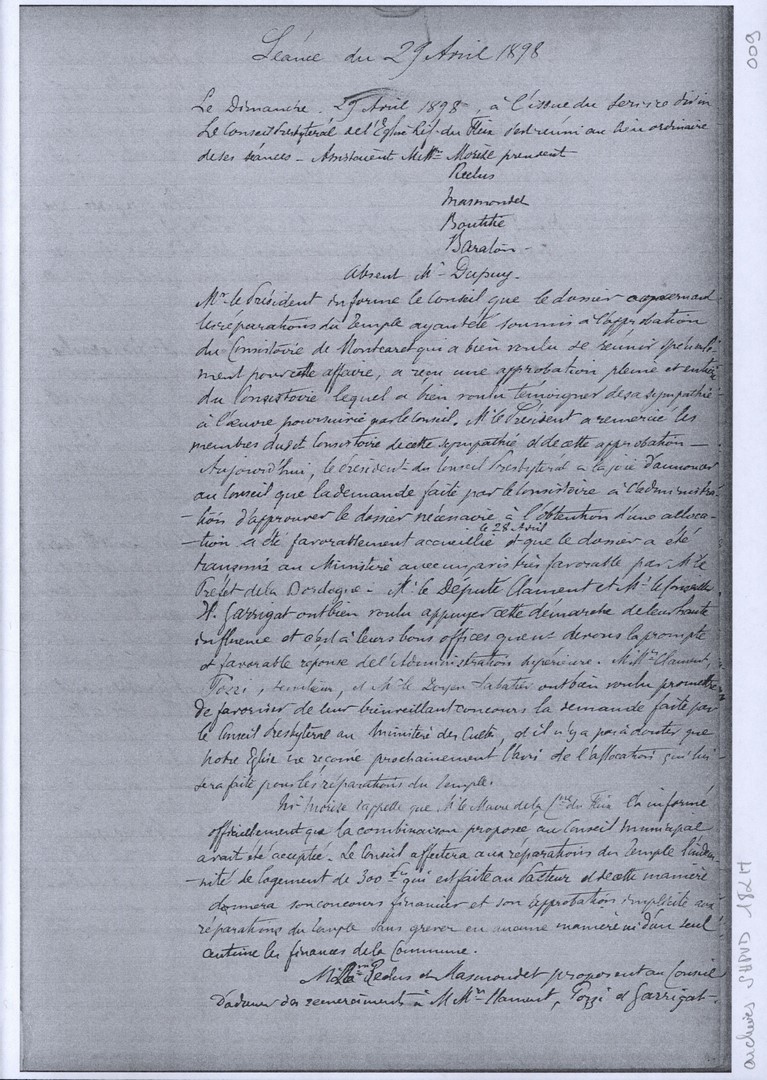 Séance du 29 Avril 1898
009
Le Dimanche. 29 Avril 1898, à l'issue du service divin
Le Conseil Presbytéral de l'Eglise Réf. du Fleix s'est réuni au lieu ordinaire
de ses séances - Assistaient MMrs Morize président
Reclus
Masmondet
Boutitie
Baraton -
Absent Mr Dupuy.
Mr le Président informe le Conseil que le dossier concernant
les réparations du Temple ayant été soumis à l'approbation
du Consistoire de Montcaret qui a bien voulu se réunir spéciale-
ment pour cette affaire, a reçu une approbation pleine et entière
du Consistoire lequel a bien voulu témoigner de sa sympathie
à l'œuvre poursuivie par le Conseil. Mr le Président a remercié les
membres dudit Consistoire de cette sympathie et de cette approbation -
Aujourd'hui, le président du Conseil Presbytéral a la joie d'annoncer
au Conseil que la demande faite par le Consistoire à l'administra-
-tion d'approuver le dossier nécessaire à l'obtention d'une alloca-
le 28 Avril
-tion a été favorablement accueillie et que le dossier a été
transmis au Ministère avec un avis très favorable par Mr le
Préfet de la Dordogne - Mr le Député Clament et Mr le Conseiller
Gt. Garrigat ont bien voulu appuyer cette démarche de leur haute
influence et c'est à leurs bons offices que ns devons la prompte
et favorable réponse de l'Administration supérieure. MMrs Clament,
Pozzi, sénateur, et Mr le Doyen Sabatier ont bien voulu promettre
de favoriser de leur bienveillant concours la demande faite par
le Conseil Presbytéral au Ministère des Cultes, et il n'y a pas à douter que
notre Eglise ne reçoive prochainement l'avis de l'allocation qui lui
sera faite pour les réparations du Temple.
Mr Morize rappelle que Mr le Maire de la Cne du Fleix l'a informé
officiellement que la combinaison proposée au Conseil Municipal
avait été acceptée. Le Conseil affectera aux réparations du Temple l'indem-
-nité de logement de 300 frs qui est faite au Pasteur et de cette manière
donnera son concours financier et son approbation implicite aux
réparations du temple sans grever en aucune manière ni d'un seul
centime les finances de la Commune.
Reclus et Masmondet proposent au Conseil
d'adresser des remerciements à MMrs Clament, Pozzi et Garrigat -
archives SHPVD 182H